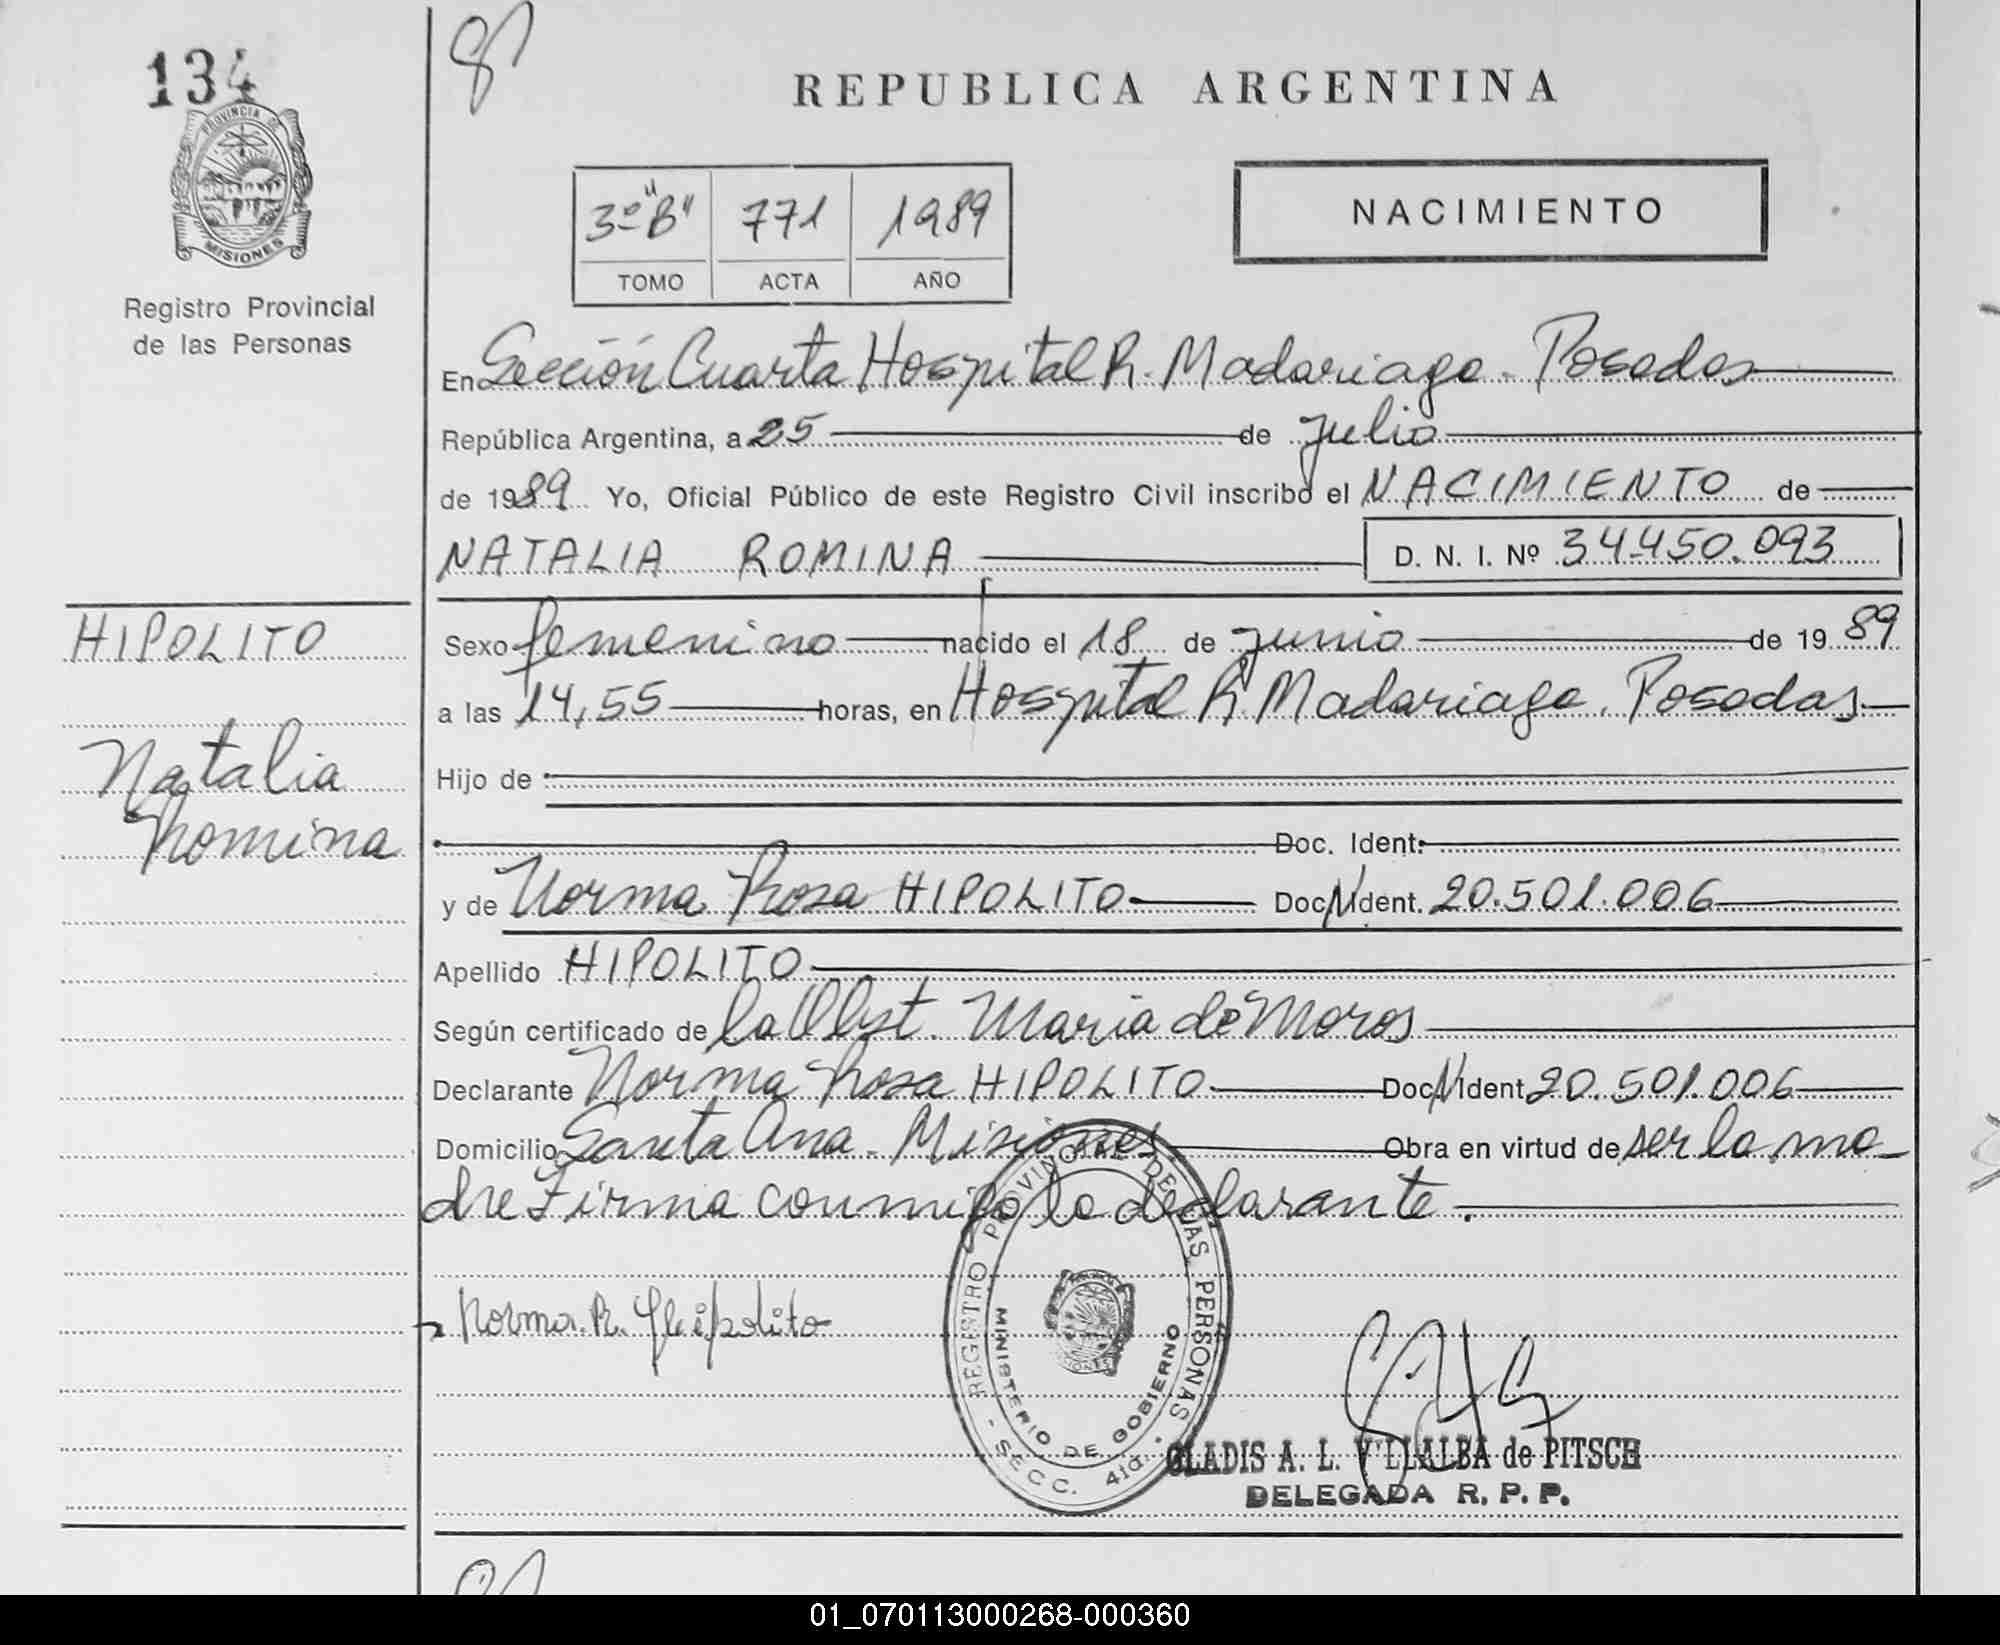 134
REPUBLICA ARGENTINA
PROVINCIA DE
MISIONES
Registro Provincial
de las Personas
3º "B" 771 1989
TOMO ACTA AÑO
NACIMIENTO
En Sección Cuarta Hospital R. Madariaga - Posadas
República Argentina, a 25 de Julio
de 1989 Yo, Oficial Público de este Registro Civil inscribo el NACIMIENTO de
NATALIA ROMINA D. N. I. Nº 34.450.093
HIPOLITO
Natalia
Romina
Sexo femenino nacido el 18 de junio de 1989
a las 14,55 horas, en Hospital R. Madariaga. Posadas
Hijo de
Doc. Ident.
y de Norma Rosa HIPOLITO Doc N Ident. 20.501.006
Apellido HIPOLITO
Según certificado de la Obst. Maria de Moros
Declarante Norma Rosa HIPOLITO Doc N Ident 20.501.006
Domicilio Santa Ana - Misiones Obra en virtud de ser la ma
dre Firma conmigo la declarante.
Norma. R. Hipolito
REGISTRO PROVINCIAL DE LAS PERSONAS - SECC. 4ta. -
MINISTERIO DE GOBIERNO
GLADIS A. L. VILLALBA de PITSCH
DELEGADA R. P. P.
01_070113000268-000360